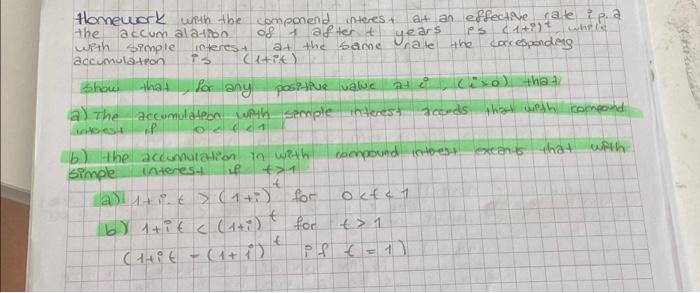 Homework with the componend interest at an effective rate i p.a
the accumalation of 1 after t years is (1+i)t while
with simple interest at the same rate the corresponding
accumulation is (1+it)
show that, for any positive value at i, (i>0) that
a) The accumulation with simple interest that with compound
interest if 0<t<1
b) the accumulation in with compound interest that with
simple interest if t>1
a) 1+i.t > (1+i)^t for 0<t<1
b) 1+it < (1+i)^t for t>1
(1+it - (1+i)^t if t=1)